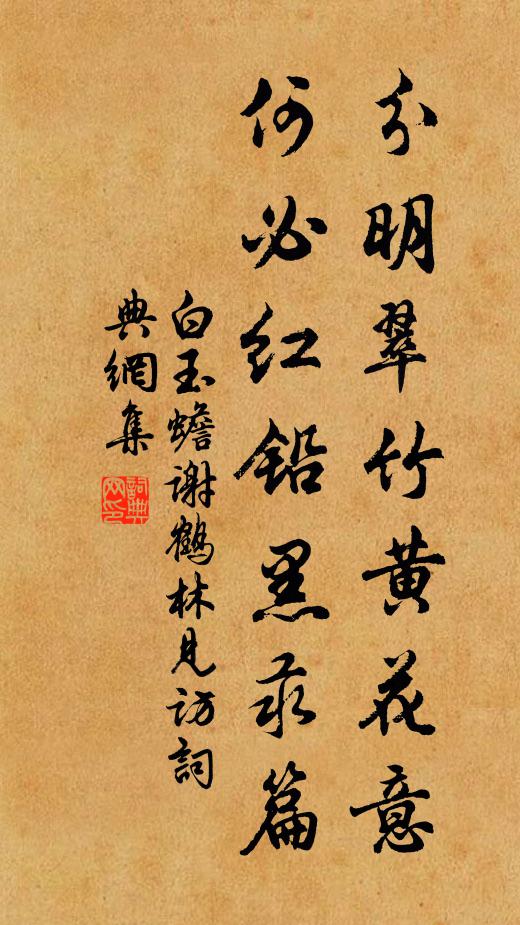 分明翠竹黄花意
何必红铅黑汞篇
白玉蟾谢鹤林见访词
典網集
詞典網印